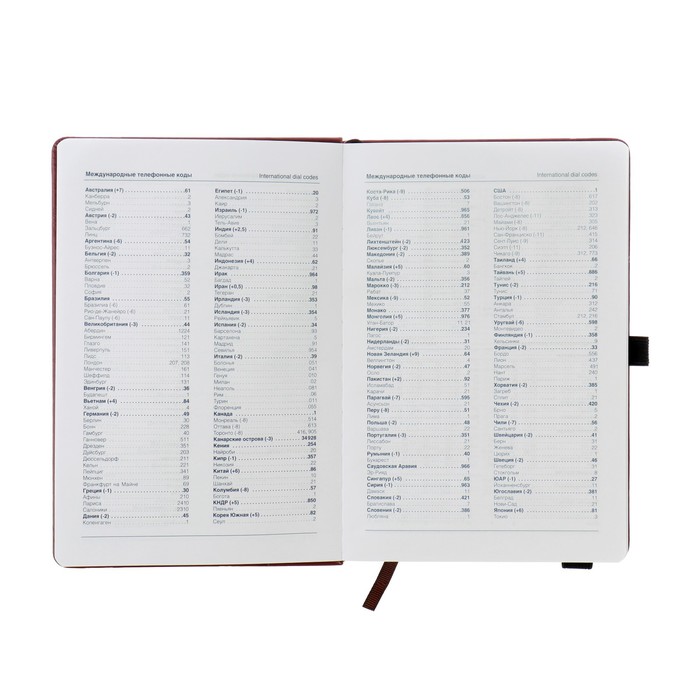 Международные телефонные коды
International dial codes
Австралия (+7) 61
Канберра 2
Мельбурн 3
Сидней 2
Австрия (-2) 43
Вена 1
Зальцбург 662
Линц 732
Аргентина (-6) 54
Буэнос-Айрес 11
Бельгия (-2) 32
Антверпен 3
Брюссель 2
Болгария (-1) 359
Варна 52
Пловдив 32
София 2
Бразилия 55
Бразилиа (-6) 61
Рио-де-Жанейро (-6) 21
Сан-Паулу (-6) 11
Великобритания (-3) 44
Абердин 1224
Бирмингем 121
Глазго 141
Ливерпуль 151
Лидс 113
Лондон 207, 208
Манчестер 161
Шеффилд 114
Эдинбург 131
Венгрия (-2) 36
Будапешт 1
Вьетнам (+4) 84
Ханой 4
Германия (-2) 49
Берлин 30
Бонн 228
Гамбург 40
Ганновер 511
Дрезден 351
Дуйсбург 203
Дюссельдорф 211
Кельн 221
Лейпциг 341
Мюнхен 89
Франкфурт на Майне 69
Греция (-1) 30
Афины 210
Лариса 2410
Салоники 2310
Дания (-2) 45
Копенгаген 1
Египет (-1) 20
Александрия 3
Каир 2
Израиль (-1) 972
Иерусалим 2
Тель-Авив 3
Индия (+2,5) 91
Бомбей 22
Дели 11
Калькутта 33
Мадрас 44
Индонезия (+4) 62
Джакарта 21
Ирак 964
Багдад 1
Иран (+0,5) 98
Тегеран 21
Ирландия (-3) 353
Дублин 1
Исландия (-3) 354
Рейкьявик 5
Испания (-2) 34
Барселона 93
Картахена 5
Мадрид 91
Севилья 954
Италия (-2) 39
Болонья 051
Венеция 041
Генуя 010
Милан 02
Неаполь 081
Рим 06
Турин 011
Флоренция 055
Канада 1
Монреаль (-8) 514
Оттава (-8) 613
Торонто (-8) 416, 905
Канарские острова (-3) 34928
Кения 254
Найроби 20
Кипр (-1) 357
Никозия 22
Китай (+6) 86
Пекин 10
Шанхай 21
Колумбия (-8) 57
Богота 1
КНДР (+5) 850
Пхеньян 2
Корея Южная (+5) 82
Сеул 2
Международные телефонные коды
International dial codes
Коста Рика (-9) 506
Куба (-8) 53
Гавана 7
Кувейт 965
Лаос (+4) 856
Вьентьян 21
Ливан (-1) 961
Бейрут 1
Лихтенштейн (-2) 423
Люксембург (-2) 352
Македония (-2) 389
Скопье 2
Малайзия (+5) 60
Куала-Лумпур 3
Мальта (-2) 356
Марокко (-3) 212
Рабат 37
Мексика (-9) 52
Мехико 55
Монако 377
Монголия (+5) 976
Улан-Батор 11, 21
Нигерия (-2) 234
Лагос 1
Нидерланды (-2) 31
Амстердам 20
Новая Зеландия (+9) 64
Веллингтон 4
Норвегия (-2) 47
Осло 2
Пакистан (+2) 92
Исламабад 51
Карачи 21
Парагвай (-7) 595
Асунсьон 21
Перу (-8) 51
Лима 1
Польша (-2) 48
Варшава 22
Португалия (-3) 351
Лиссабон 21
Порту 22
Румыния (-1) 40
Бухарест 1
Саудовская Аравия 966
Эр-Рияд 1
Сингапур (+5) 65
Сирия (-1) 963
Дамаск 11
Словакия (-2) 421
Братислава 2
Словения (-2) 386
Любляна 1
США 1
Бостон (-8) 617
Вашингтон (-8) 202
Детройт (-8) 313
Лос-Анджелес (-11) 213
Майами (-8) 305
Нью-Йорк (-8) 212, 646
Сан-Франциско (-11) 415
Сент-Луис (-9) 314
Сиэтл (-11) 206
Чикаго (-9) 312, 773
Таиланд (+4) 66
Бангкок 2
Тайвань (+5) 886
Тайбэй 2
Тунис (-2) 216
Тунис 71
Турция (-1) 90
Анкара 312
Анталья 242
Стамбул 212, 216
Уругвай (-6) 598
Монтевидео 2
Финляндия (-1) 358
Хельсинки 9
Франция (-2) 33
Бордо 556
Лион 437
Марсель 491
Ницца 492
Париж 1
Хорватия (-2) 385
Загреб 1
Сплит 21
Чехия (-2) 420
Брно 5
Прага 2
Чили (-7) 56
Сантьяго 2
Швейцария (-2) 41
Берн 31
Женева 22
Цюрих 1
Швеция (-2) 46
Гетеборг 31
Стокгольм 8
ЮАР (-1) 27
Йоханнесбург 11
Югославия (-2) 381
Белград 11
Нови-Сад 21
Япония (+6) 81
Токио 3